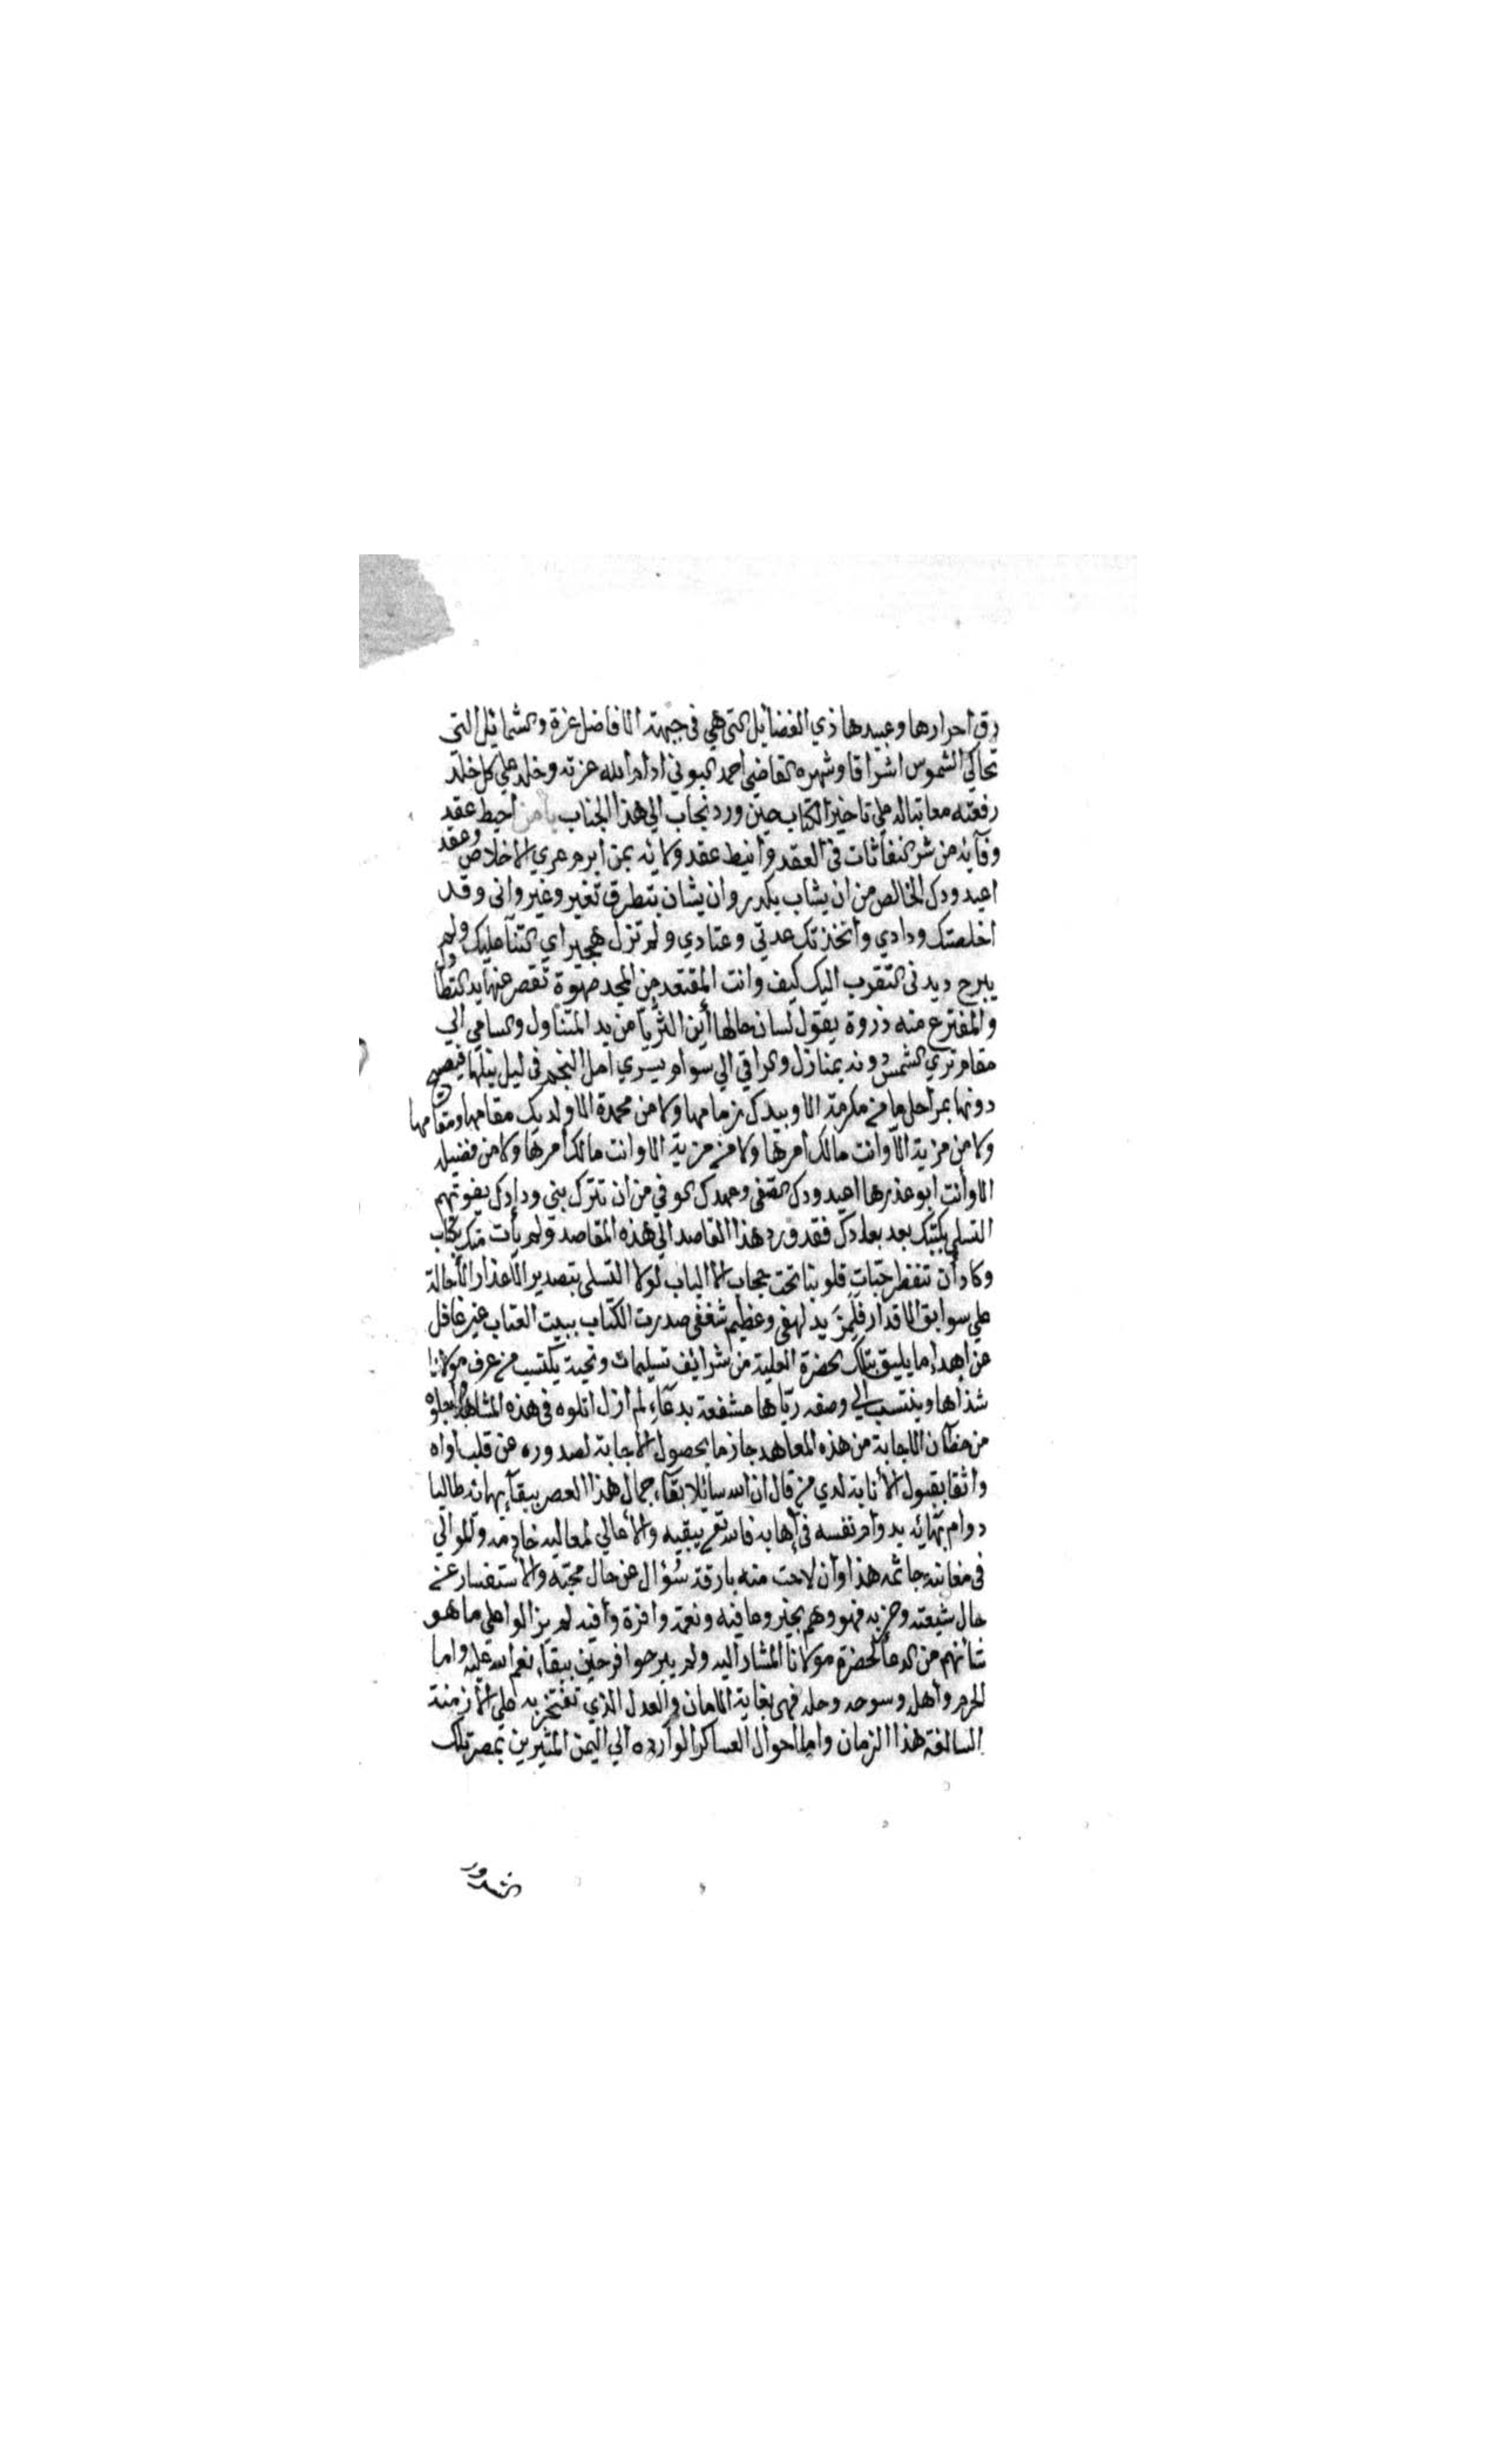 رق احرارها وعبيدها ذي الفضايل التي هي في جبهة الافاضل غرة والشمايل التي
تحاكي الشموس اشراقا وشهره القاضي احمد البوني ادام الله عزته وخلد علي كل خلد
رفعته معاتبا له علي تاخير الكتاب حين ورد نجاب الي هذا الجناب يا من احيط عقد
وفآيه من شر النفاثات في العقد وانيط عقد ولائه بمن ابرم عري الاخلاص وعقد
اعيد ودك الخالص من ان يشاب بكدر وان يشان بتطرق تغير وغير واني وقد
اخلصتك ودادي واتخذتك عدتي وعتادي ولم تزل هجيراي الثنآ عليك ولم
يبرح ديدني التقرب اليك كيف وانت المقتعد من المجد صهوة تقصر عنها يد التطاول
والمفترع منه ذروة يقول لسان حالها أين الثريا من يد المتناول والسامي الي
مقام تري الشمس دونه بمنازل والراقي الي سوام يسري امل النجم في ليل نيلها فيصبح
دونها بمراحل ما من مكرمة الا وبيدك زمامها ولا من محمدة الا ولديك مقامها ومقامها
ولا من مزية الا وانت مالك امرها ولا من مزية الا وانت مالك امرها ولا من فضيله
الا وأنت ابو عذرها اعيد ودك الصفي وعهدك الوفي من ان تترك بني ودادك يفوتهم
التسلي بكتبك بعد بعادك فقد ورد هذا القاصد الي هذه المقاصد ولم يأت منك بكتاب
وكاد أن تنفطر حبّات قلوبنا تحت حجاب الالباب لولا التسلي بتصدير الاعذار الأحالة
علي سوابق الاقدار فلمزيد لهفي وعظيم شغفي صدرت الكتاب ببيت العتاب غير غافل
عن اهدا ما يليق بتلك الحضرة العلية من شرائف تسليمات وتحية يكتسب من عرف مولانا
شذاها وينتسب الي وصفه رياها مشفعة بدعآء لم ازل اتلوه في هذه المشاهد واجلوه
من مظآن الاجابة من هذه المعاهد جازما بحصول الاجابة لصدوره عن قلب اواه
واثقا بقبول الأنابة لدي من قال ان الله سائلا بقآء جمال هذا العصر ببقآء بهائه طالبا
دوام بهائه بدوام نفسه في إهابه فالله تع يبقيه والأعالي لمعاليه خادمه والموالي
في مغانيه جاثمه هذا وأن لاحت منه بارقة سُؤال عن حال محبّه والأستفسار عن
حال شيعته وحزبه فهو وهم بخير وعافيه ونعمة وافرة وأفيه لم يزالوا علي ما هو
شأنهم من الدعآ لحضرة مولانا المشار اليه ولم يبرحوا فرحين ببقاء نعم الله عليه واما
الحرم وأهله وسوحه وحله فهي بغاية الامان والعدل الذي تفتخر به علي الأزمنة
السالفة هذا الزمان واما احوال العساكر الوارده الي اليمن المثيرين بمصر تلك